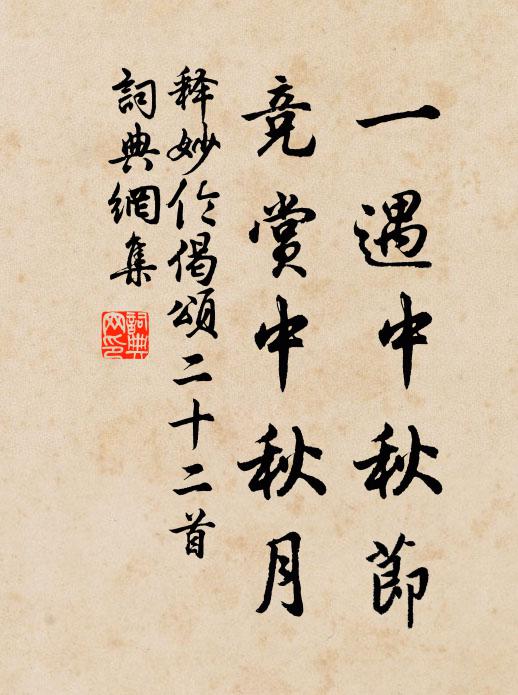 一遇中秋節
竞賞中秋月
释妙伦偈頌二十二首
詞典網集
詞典网印